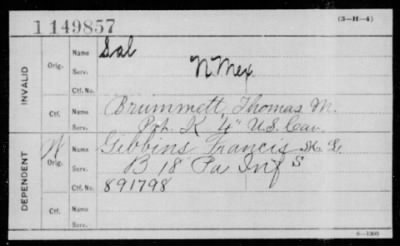 1149857
(3—H—4)
INVALID
Orig.
Name Sal
Serv. N Mex.
Ctf. No.
Ctf.
Name Brummett, Thomas M.
Serv. Pvt. K 4" U.S. Cav.
DEPENDENT
W
Orig.
Name Gibbins Francis
Serv. B 18 Pa Inf S
Ctf. No. 891798
Ctf.
Name
Serv.
6—1300